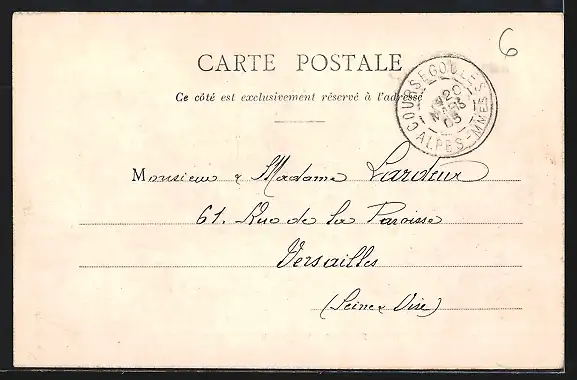 6
CARTE POSTALE
Ce côté est exclusivement réservé à l'adresse
COURSEGOULES
20
MARS
03
ALPES-MMES
Monsieur & Madame Lardeux
61. Rue de la Paroisse
Versailles
(Seine & Oise)